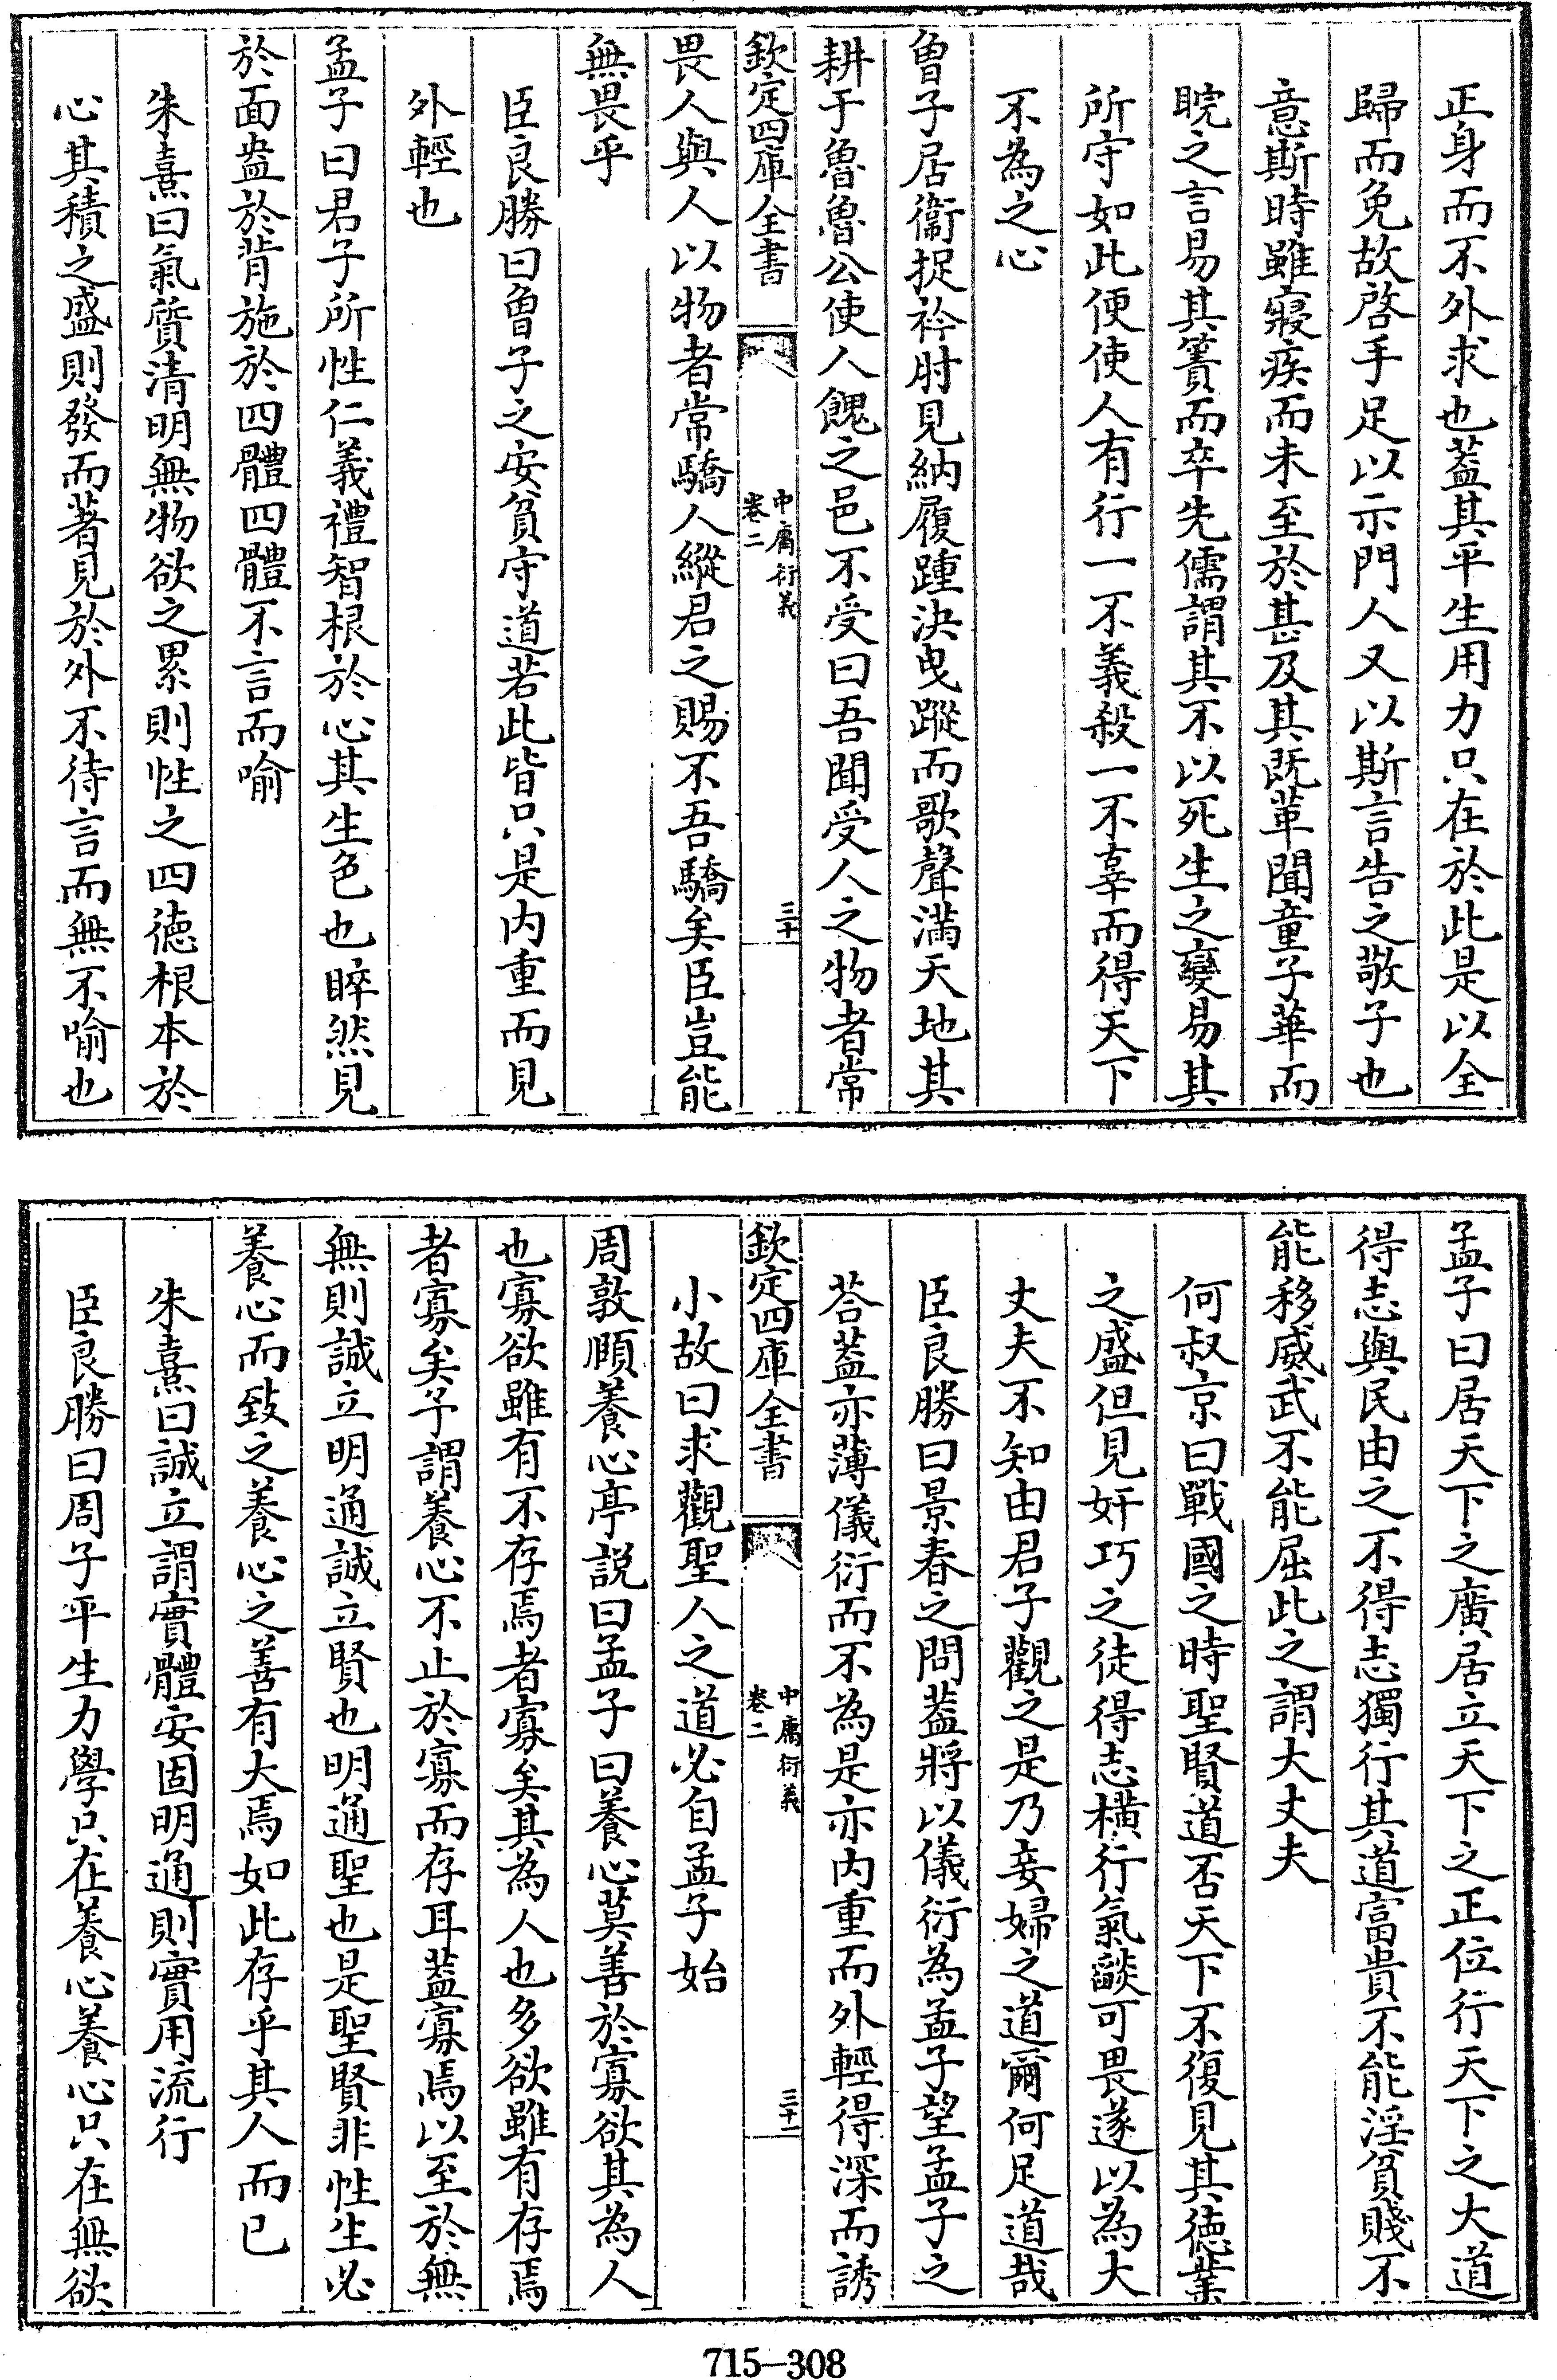 正身而不外求也蓋其平生用力只在於此是以全
歸而免故啓手足以示門人又以斯言告之敬子也
意斯時雖寢疾而未至於甚及其既革聞童子華而
睆之言易其簀而卒先儒謂其不以死生之變易其
所守如此便使人有行一不義殺一不辜而得天下
不為之心
曾子居衞捉衿肘見納履踵決曳蹤而歌聲滿天地其
耕于魯魯公使人餽之邑不受曰吾聞受人之物者常
欽定四庫全書
中庸衍義
卷二
三十
畏人與人以物者常驕人縱君之賜不吾驕矣臣豈能
無畏乎
臣良勝曰曾子之安貧守道若此皆只是内重而見
外輕也
孟子曰君子所性仁義禮智根於心其生色也睟然見
於面盎於背施於四體四體不言而喻
朱熹曰氣質清明無物欲之累則性之四徳根本於
心其積之盛則發而著見於外不待言而無不喻也
孟子曰居天下之廣居立天下之正位行天下之大道
得志與民由之不得志獨行其道富貴不能淫貧賤不
能移威武不能屈此之謂大丈夫
何叔京曰戰國之時聖賢道否天下不復見其徳業
之盛但見奸巧之徒得志横行氣燄可畏遂以為大
丈夫不知由君子觀之是乃妾婦之道爾何足道哉
臣良勝曰景春之問蓋將以儀衍為孟子望孟子之
荅蓋亦薄儀衍而不為是亦内重而外輕得深而誘
欽定四庫全書
中庸衍義
卷二
三十一
小故曰求觀聖人之道必自孟子始
周敦頤養心亭説曰孟子曰養心莫善於寡欲其為人
也寡欲雖有不存焉者寡矣其為人也多欲雖有存焉
者寡矣予謂養心不止於寡而存耳蓋寡焉以至於無
無則誠立明通誠立賢也明通聖也是聖賢非性生必
養心而致之養心之善有大焉如此存乎其人而已
朱熹曰誠立謂實體安固明通則實用流行
臣良勝曰周子平生力學只在養心養心只在無欲
715-308